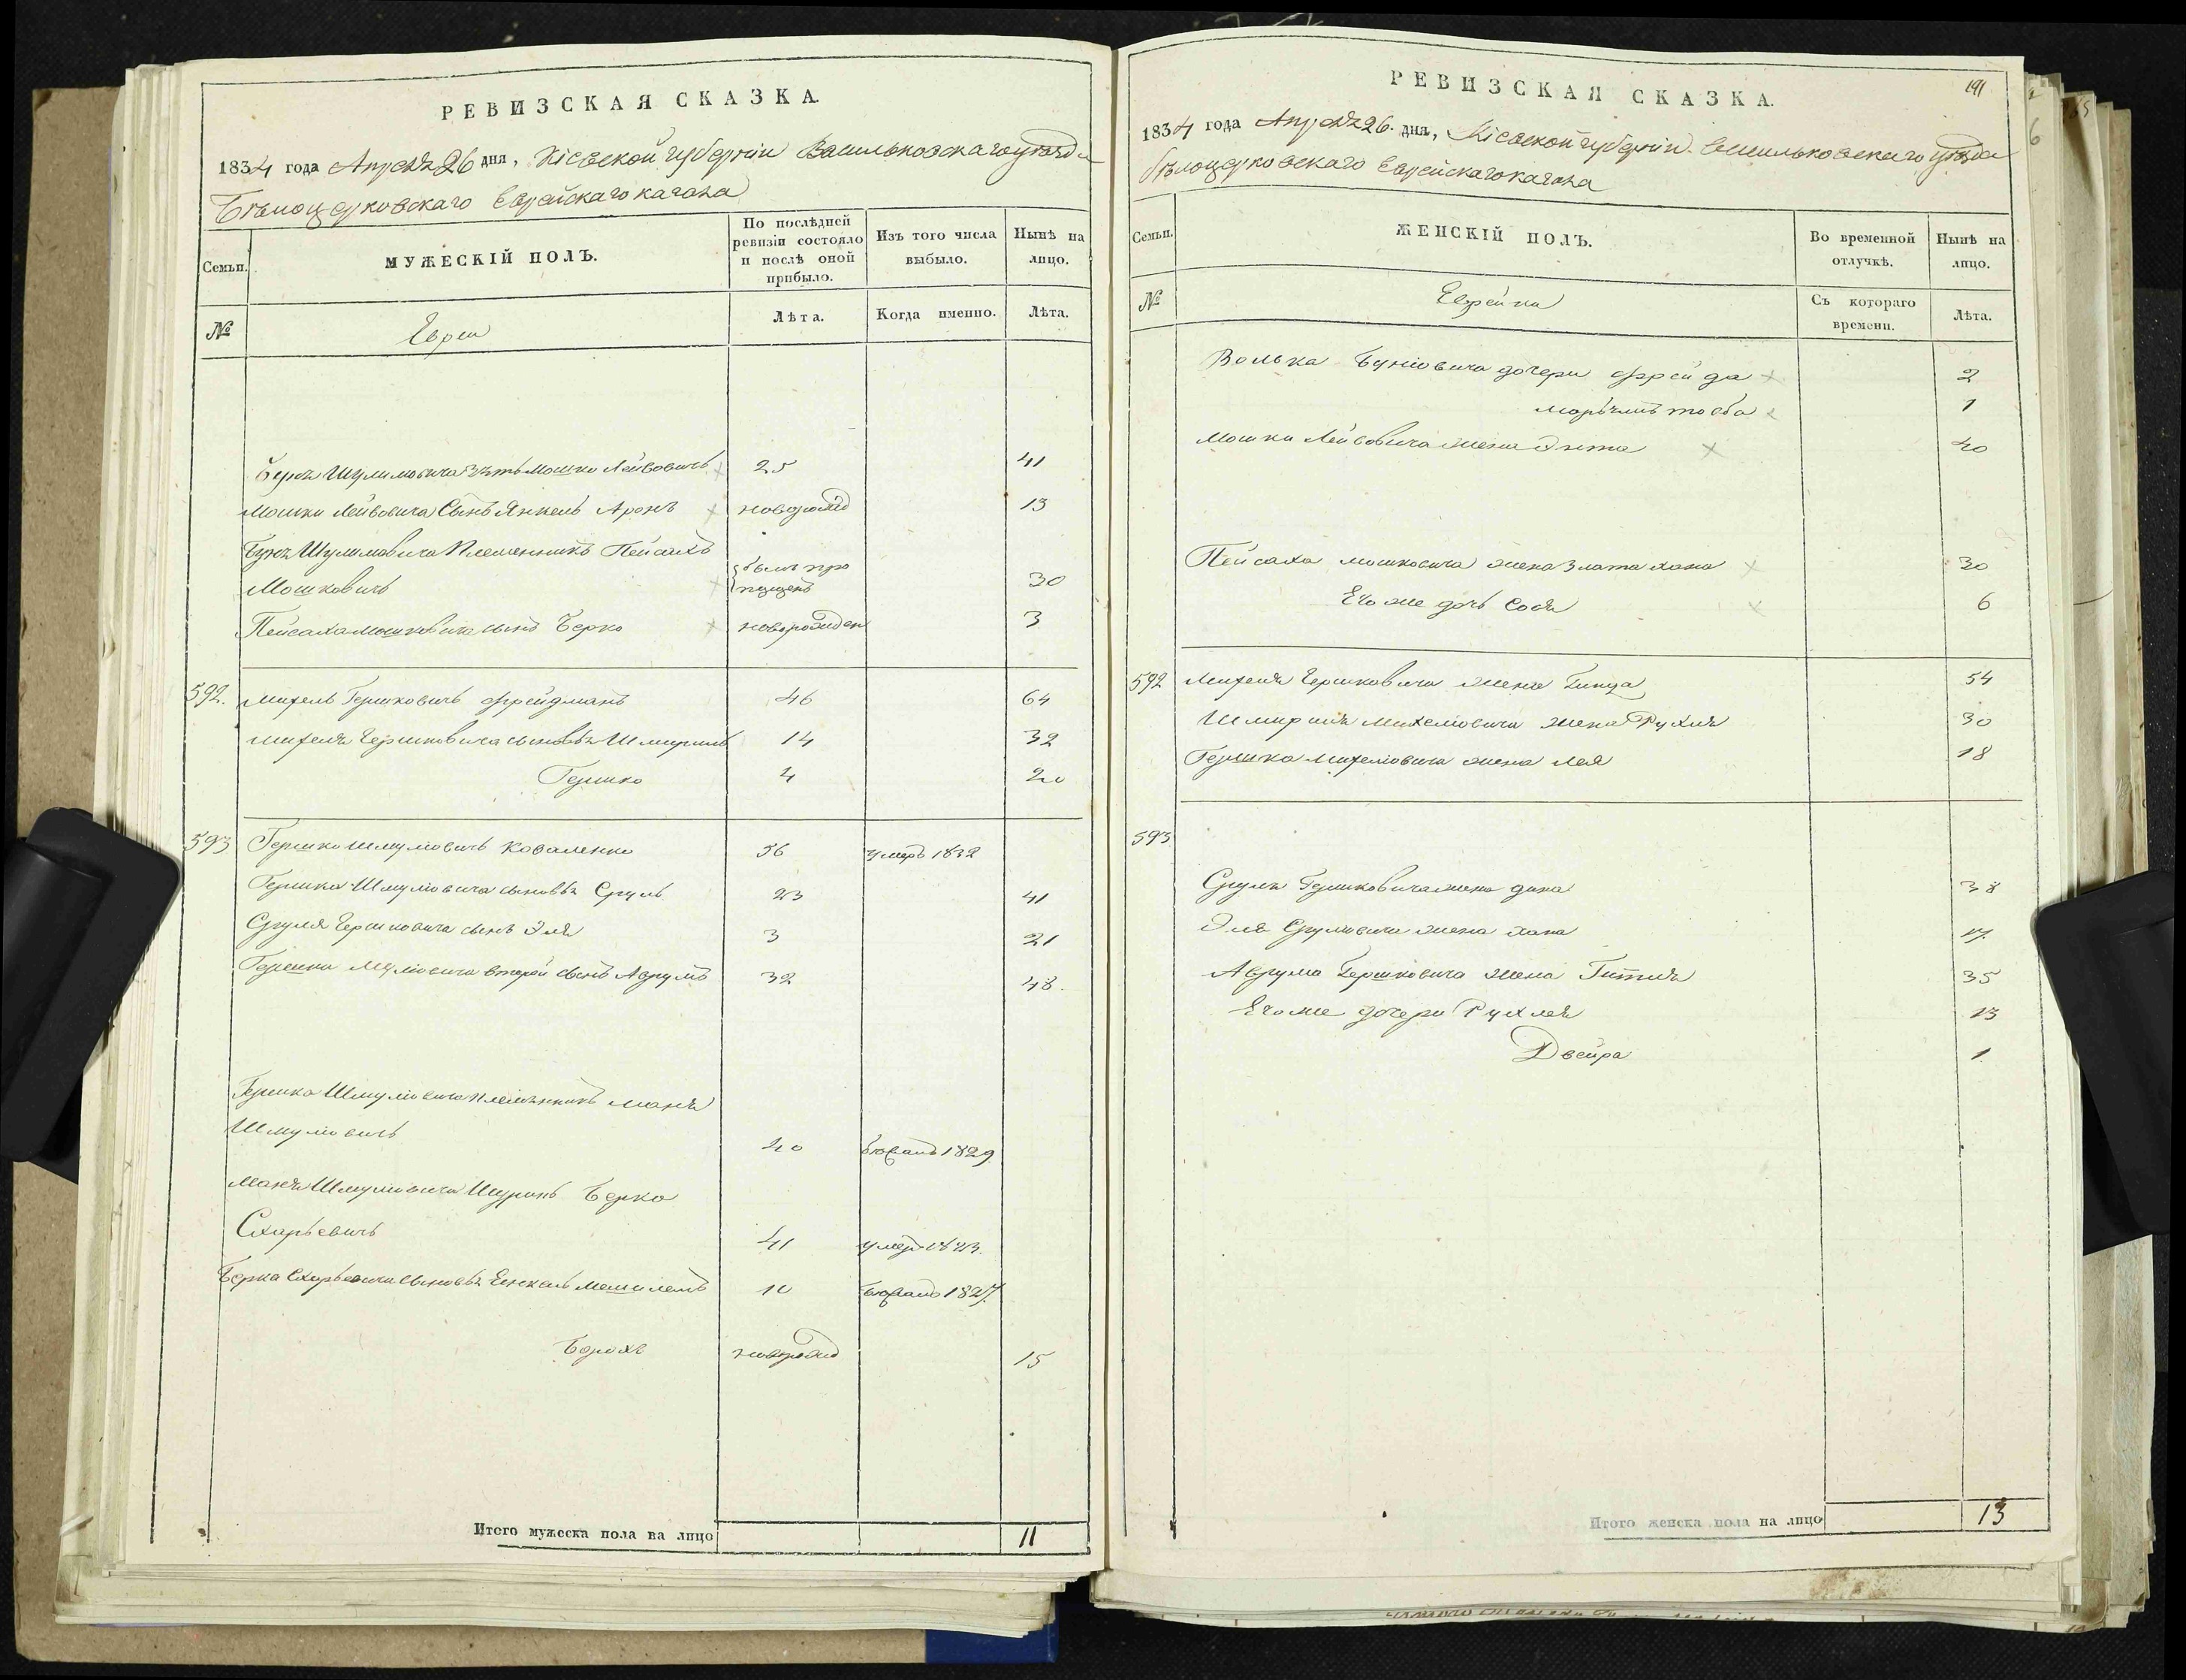 РЕВИЗСКАЯ СКАЗКА.
1834 года Апреля 26 дня, Кіевской губерніи Васильковскаго уѣзда
Бѣлоцерковскаго Еврейскаго кагала
Семьи.
МУЖЕСКІЙ ПОЛЪ.
По послѣдней ревизіи состояло и послѣ оной прибыло.
Изъ того числа выбыло.
Нынѣ на лицо.
№
Евреи
Лѣта.
Когда именно.
Лѣта.
Шулимовича зять Мошко Лейбовичъ 25 41
Мошки Лейбовича Сынъ Янкель Аронъ новорожд 13
Шулимовича Племенникъ Пейсахъ
Мошковичъ былъ пропущенъ 30
Пейсаха Мошковича сынъ Берко новорожден 3
592. Михель Гершковичъ Фрейдманъ 46 64
Михеля Гершковича сыновья Шмериль 14 32
Гершко 4 20
593 Гершко Шмуліовичъ Коваленко 56 умеръ 1832
Гершка Шмуліовича сыновья Сруль 23 41
Сруля Гершковича сынъ Эля 3 21
Гершки Шмуліовича второй сынъ Аврумъ 32 48.
Гершка Шмуліовича племенникъ
Шмуліовичъ 40 1829
Шмуліовича Шуринъ Берко
41
10 1827.
новорожд 15
Итого мужеска пола на лицо 11
191
РЕВИЗСКАЯ СКАЗКА.
1834 года Апреля 26. дня, Кіевской губерніи Васильковскаго уѣзда
бѣлоцерковскаго Еврейскаго кагала
Семьи.
ЖЕНСКІЙ ПОЛЪ.
Во временной отлучкѣ.
Нынѣ на лицо.
№
Еврейки
Съ котораго времени.
Лѣта.
Волька Буніовича дочери Фрейда 2
тоба 1
Мошки Лейбовича жена Энта 40
Пейсаха Мошковича жена Злата хана 30
Его же дочь Сося 6
592 Михеля Гершковича жена 54
Шмериля Михеліовича жена Рухля 30
Гершка Михеліовича жена Лея 18
593
Сруля Гершковича жена 38
Эля Сруліовича жена хана 17.
Аврума Гершковича жена Гитля 35
Его же дочери Рухля 13
Двейра 1
Итого женска пола на лицо 13